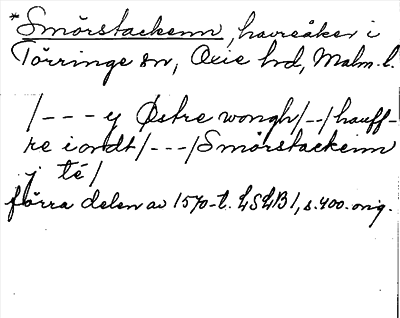 *Smörstackenn, havreåker i
Törringe sn, Oxie hd, Malm. l.
/--- y Østre wongh/--/hauff-
re iordt/---/Smörstackenn
j té/
förra delen av 1570-t. LSLB1, s. 400. orig.